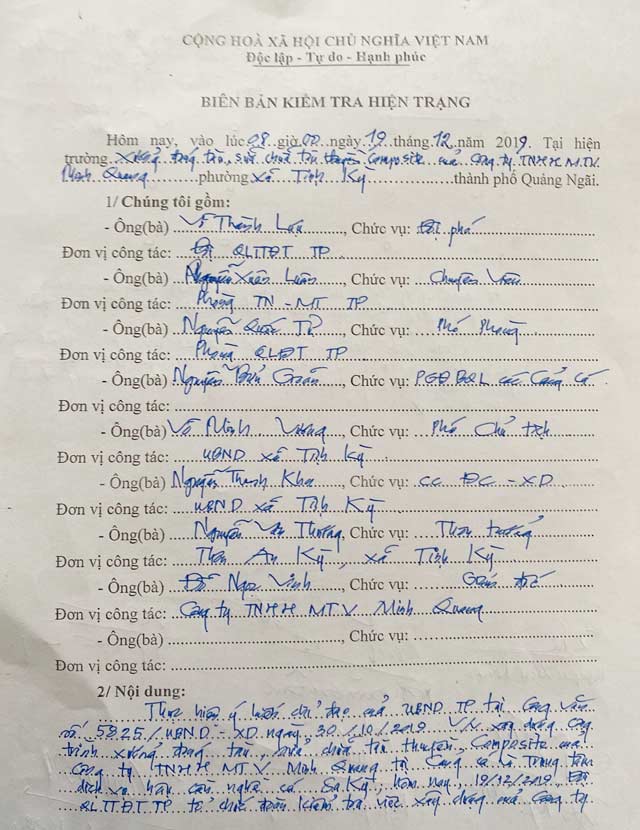 CỘNG HOÀ XÃ HỘI CHỦ NGHĨA VIỆT NAM
Độc lập - Tự do - Hạnh phúc
BIÊN BẢN KIỂM TRA HIỆN TRẠNG
Hôm nay, vào lúc 08 giờ 00 ngày 19 tháng 12 năm 2019. Tại hiện
trường xưởng đóng tàu, sửa chữa tàu thuyền Composite của Công ty TNHH MTV
Minh Quang phường xã Tịnh Kỳ thành phố Quảng Ngãi.
1/ Chúng tôi gồm:
- Ông(bà) Võ Thành, Chức vụ: Đội phó
Đơn vị công tác: Đội QLTTĐT TP
- Ông(bà) Nguyễn Xuân, Chức vụ: Chuyên viên
Đơn vị công tác: Phòng TN-MT TP
- Ông(bà) Nguyễn Quốc, Chức vụ: Phó Phòng
Đơn vị công tác: Phòng QLĐT TP
- Ông(bà) Nguyễn, Chức vụ: PGĐ BQL các Cảng cá
Đơn vị công tác:
- Ông(bà) Võ Minh Vương, Chức vụ: Phó Chủ tịch
Đơn vị công tác: UBND xã Tịnh Kỳ
- Ông(bà) Nguyễn Thanh, Chức vụ: CC ĐC-XD
Đơn vị công tác: UBND xã Tịnh Kỳ
- Ông(bà) Nguyễn Văn Thương, Chức vụ: Thôn trưởng
Đơn vị công tác: Thôn An Kỳ, xã Tịnh Kỳ
- Ông(bà) Đỗ Ngọc Vinh, Chức vụ: Giám đốc
Đơn vị công tác: Công ty TNHH MTV Minh Quang
- Ông(bà), Chức vụ:
Đơn vị công tác:
2/ Nội dung:
Thực hiện ý kiến chỉ đạo của UBND TP tại Công văn
số 5825/UBND-XD ngày 30/10/2019 V/v xây dựng công
trình xưởng đóng tàu, sửa chữa tàu thuyền Composite của
Công ty TNHH MTV Minh Quang tại Cảng cá và Trung tâm
dịch vụ hậu cần nghề cá Sa Kỳ, hôm nay, 19/12/2019, Đội
QLTTĐT TP tổ chức đoàn kiểm tra việc xây dựng của Công ty